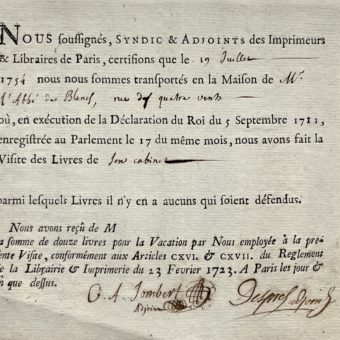 NOUS soussignés, SYNDIC & ADJOINTS des Imprimeurs
& Libraires de Paris, certifions que le 19 Juillet
1754 nous nous sommes transportés en la Maison de Mr
l'Abbé de , rue des quatre vents
où, en exécution de la Déclaration du Roi du 5 Septembre 1711,
enregistrée au Parlement le 17 du même mois, nous avons fait la
Visite des Livres de son cabinet
parmi lesquels Livres il n'y en a aucuns qui soient défendus.
Nous avons reçu de M
la somme de douze livres pour la Vacation par Nous employée à la pré-
sente Visite, conformément aux Articles CXVI. & CXVII. du Reglement
de la Librairie & Imprimerie du 23 Fevrier 1723. A Paris les jour &
an que dessus.
C. A. Jombert
Adjoint